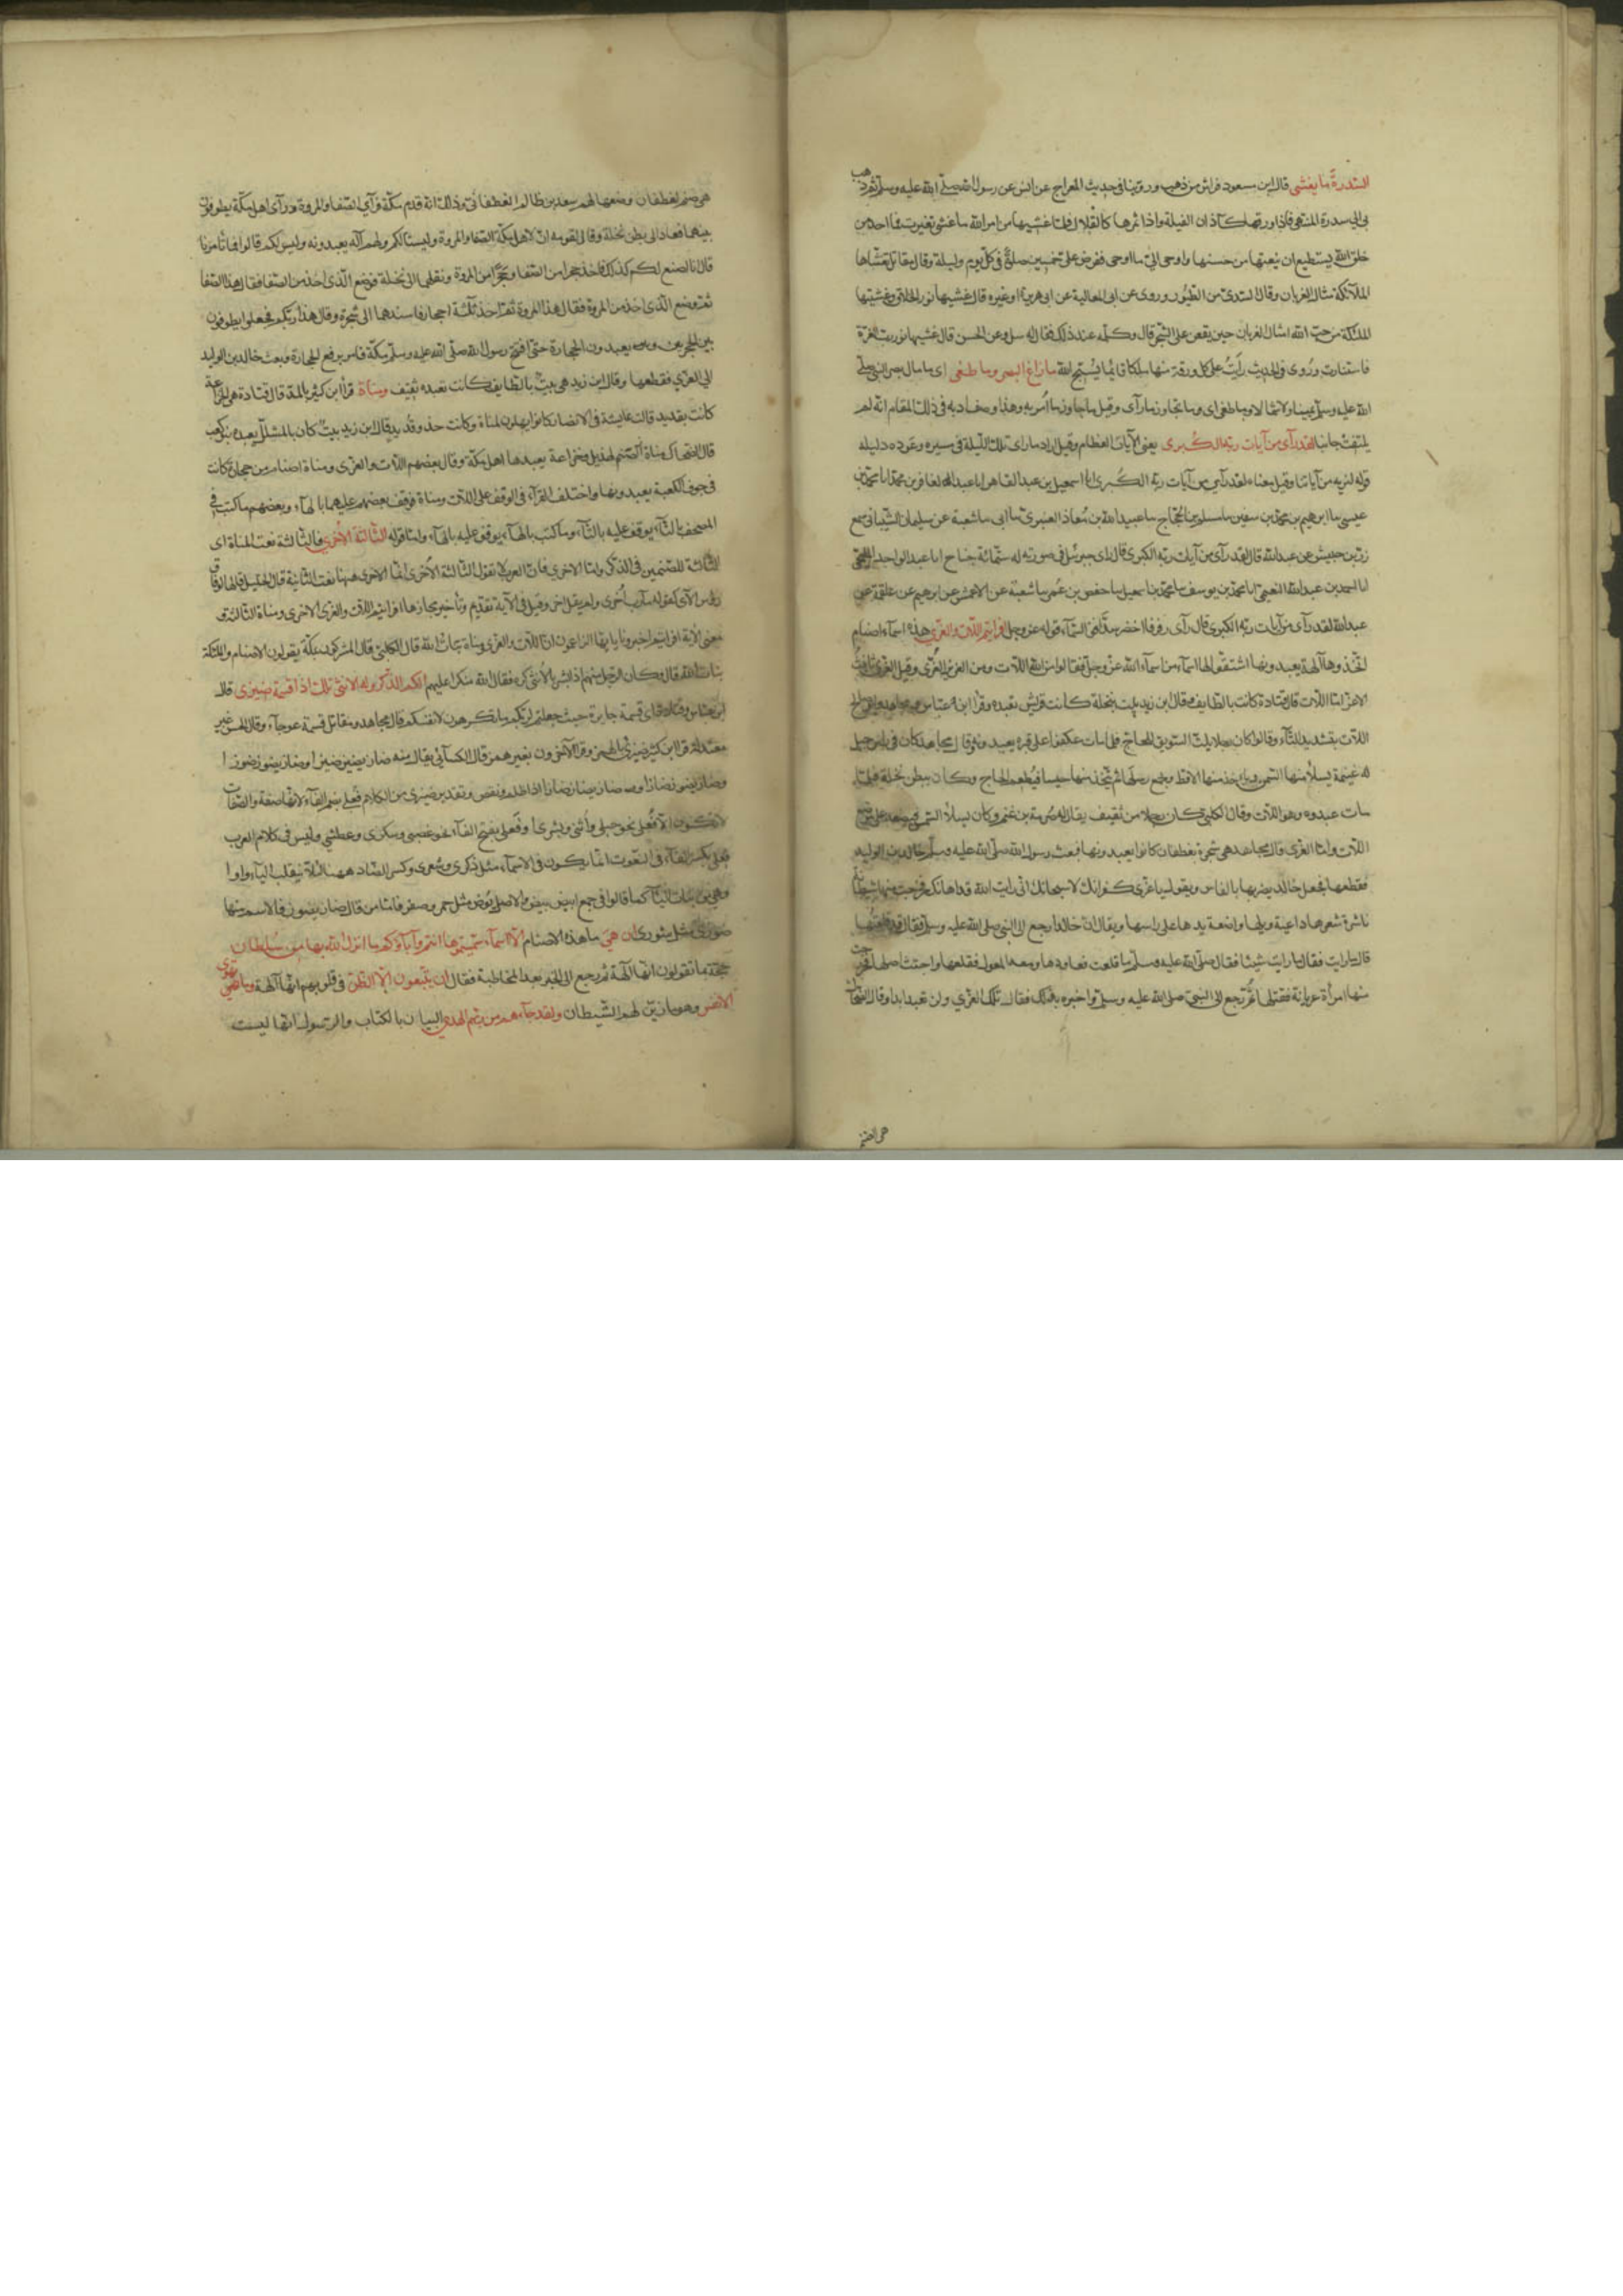 السدرة ما يغشى قال ابن مسعود فراش من ذهب وروينا في حديث المعراج عن انس عن رسول الله صلى الله عليه وسلم ثم ذهب
بي الى سدرة المنتهى فاذا ورقها كآذان الفيلة واذا ثمرها كالقلال فلما غشيها من امر الله ما غشى تغيرت فما احد من
خلق الله يستطيع ان ينعتها من حسنها واوحى اليّ ما اوحى ففرض علي خمسين صلوة في كل يوم وليلة وقال مقاتل تغشاها
الملآئكة امثال الغربان وقال السدي من الطيور وروى عن ابي العالية عن ابي هريرة او غيره قال غشيها نور الخلاق وغشيتها
الملئكة من حب الله امثال الغربان حين يقعن على الشجر قال وكلمه عند ذلك فقال له سل وعن الحسن قال غشيها نور رب العزة
فاستنارت وروى في الحديث رأيت على كل ورقة منها ملكا قائما يسبح الله ما زاغ البصر وما طغى اى ما مال بصر النبي صلى
الله عليه وسلم يمينا ولا شمالا وما طغى اى وما تجاوز ما رآى وقيل ما جاوز ما امر به وهذا وصف ادبه في ذلك المقام انه لم
يلتفت جانبا لقد رآى من آيات ربه الكبرى يعني الآيات العظام وقيل اراد ما راى تلك الليلة في مسيره وعوده دليله
قوله لنريه من آياتنا وقيل معناه لقد رآى من آيات ربه الكبرى انا اسمعيل بن عبد القاهر انا عبد الغافر بن محمد انا محمد بن
عيسى ساابرهيم بن محمد بن سفين ما مسلم بن الحجاج ما عبيد الله بن معاذ العنبري ما ابى ما شعبة عن سليمان الشيباني سمع
زر بن حبيش عن عبد الله قال لقد رآى من آيات ربه الكبرى قال راى جبرئيل في صورته له ستمائة جناح انا عبد الواحد المليحي
انا احمد بن عبد الله النعيمي انا محمد بن يوسف سا محمد بن اسمعيل سا حفص بن عمر سا شعبة عن الاعمش عن ابرهيم عن علقمة عن
عبد الله لقد رآى من آيات ربه الكبرى قال رآى رفرفا اخضر سد افق السمآء قوله عز وجل افرايتم اللات والعزى هذه اسمآء اصنام
اتخذوها آلهة يعبدونها اشتقوا لها اسمآء من اسمآء الله عز وجل فقالوا من الله اللات ومن العزيز العزى وقيل العزى تانيث
الاعز امّا اللات قال قتادة كانت بالطايف وقال ابن زيد بيت بنخلة كانت قريش تعبده وقرأ ابن عباس ومجاهد وابو صالح
اللات بتشديد التآء وقالوا كان رجلا يلت السويق للحاج فلما مات عكفوا على قبره يعبدونه وقال مجاهد كان في راس جبل
له غنيمة يسلأ منها السمن وياخذ منها الاقط ويجمع رسلها ثم يتخذ منها حيسا فيطعم الحاج وكان ببطن نخلة فلما
مات عبدوه وهو اللات وقال الكلبي كان رجلا من ثقيف يقال له صرمة بن غنم وكان يسلأ السمن فيضعه على صخرة
اللآت وامّا العزى قال مجاهد هي شجرة بغطفان كانوا يعبدونها فبعث رسول الله صلى الله عليه وسلم خالد بن الوليد
فقطعها فجعل خالد يضربها بالفاس ويقول يا عزى كفرانك لا سبحانك اني رايت الله قد اهانك فخرجت منها شيطانة
ناشرة شعرها داعية ويلها واضعة يدها على راسها ويقال ان خالدا رجع الى النبي صلى الله عليه وسلم فقال قد قلعتها
قال ما رايت فقال ما رايت شيئا فقال صلى الله عليه وسلم ما قلعت فعاودها ومعه المعول فقلعها واجتث اصلها فخرجت
منها امرأة عريانة فقتلها ثم رجع الى النبي صلى الله عليه وسلم واخبره بذلك فقال تلك العزى ولن تعبد ابدا وقال الضحاك
هي صنم
هي صنم لغطفان وضعها لهم سعد بن ظالم الغطفاني وذلك انه قدم مكة فرآى الصفا والمروة ورآى اهل مكة يطوفون
بينهما فعاد الى بطن نخلة وقال لقومه ان لاهل مكة الصفا والمروة وليستا لكم ولهم آله يعبدونه وليس لكم قالوا فما تامرنا
قال انا اصنع لكم كذلك فاخذ حجرا من الصفا وحجرا من المروة ونقلهما الى نخلة فوضع الذي اخذ من الصفا فقال هذا الصفا
ثم وضع الذي اخذ من المروة فقال هذا المروة ثم اخذ ثلثة احجار فاسندها الى شجرة وقال هذا ربكم فجعلوا يطوفون
بين الحجرين ويعبدون الحجارة حتى افتتح رسول الله صلى الله عليه وسلم مكة فامر برفع الحجارة وبعث خالد بن الوليد
الى العزى فقطعها وقال ابن زيد هي بيت بالطايف كانت تعبده ثقيف ومناة قرأ ابن كثير بالمد قال قتادة هي لخزاعة
كانت بقديد قالت عايشة في الانصار كانوا يهلون لمناة وكانت حذو قديد قال ابن زيد بيت كان بالمشلل يعبده بنو كعب
قال الضحاك مناة صنم لهذيل وخزاعة يعبدها اهل مكة وقال بعضهم اللات والعزى ومناة اصنام من حجارة كانت
في جوف الكعبة يعبدونها واختلف القرآء في الوقف على اللات ومناة فوقف بعضهم عليهما بالهآء وبعضهم ما كتب في
المصحف بالتآء يوقف عليه بالتآء وما كتب بالهآء يوقف عليه بالهآء وامّا قوله الثالثة الاخرى فالثالثة نعت لمناة اى
الثالثة للصنمين في الذكر وامّا الاخرى فان العرب لا تقول الثالثة الاخرى انما الاخرى ههنا نعت الثانية قال الخليل قالها لوفاق
رؤس الآى كقوله مآرب اخرى ولم يقل اخر وقيل في الآية تقديم وتأخير مجازها افرايتم اللات والعزى الاخرى ومناة الثالثة و
معنى الآية افرايتم اخبرونا يا ايها الزاعمون ان اللات والعزى ومناة بنات الله قال الكلبي قال المشركون بمكة يقولون الاصنام والملئكة
بنات الله قال وكان الرجل منهم اذا بشر بالانثى كره فقال الله منكرا عليهم الكم الذكر وله الانثى تلك اذا قسمة ضيزى قال
ابن عباس وقتادة اى قسمة جايرة حيث جعلتم لربكم ما تكرهون لانفسكم قال مجاهد ومقاتل قسمة عوجآء وقال الحسن غير
معتدلة قرأ ابن كثير ضيزى بالهمز وقرأ الآخرون بغير همز قال الكسآئي يقال منه ضاز يضيز ضيزا وضاز يضوز ضوزا
وضاز يضاز ضازا اذا ظلم ونقص وتقدير ضيزى من الكلام فعلى بضم الفآء لانها صفة والصفات
لا تكون الا فعلى نحو حبلى وانثى وبشرى او فعلى بفتح الفآء نحو غضبى وسكرى وعطشى وليس في كلام العرب
فعلى بكسر الفآء في النعوت انما يكون في الاسمآء مثل ذكرى وشعرى وكسر الضاد ههنا لئلا ينقلب اليآء واوا
وهي من بنات اليآء كما قالوا في جمع ابيض بيض والاصل بوض مثل حمر وصفر فامّا من قال ضاز يضوز فالاسم منها
ضوزى مثل شورى ان هي ما هذه الاصنام الا اسمآء سميتموها انتم وآبآؤكم ما انزل الله بها من سلطان
حجة بما تقولون انها آلهة ثم رجع الى الخبر بعد المخاطبة فقال ان يتبعون الا الظن في قلوبهم انها آلهة وما تهوى
الانفس وهو ما زين لهم الشيطان ولقد جآءهم من ربهم الهدى البيان بالكتاب والرسول انها ليست